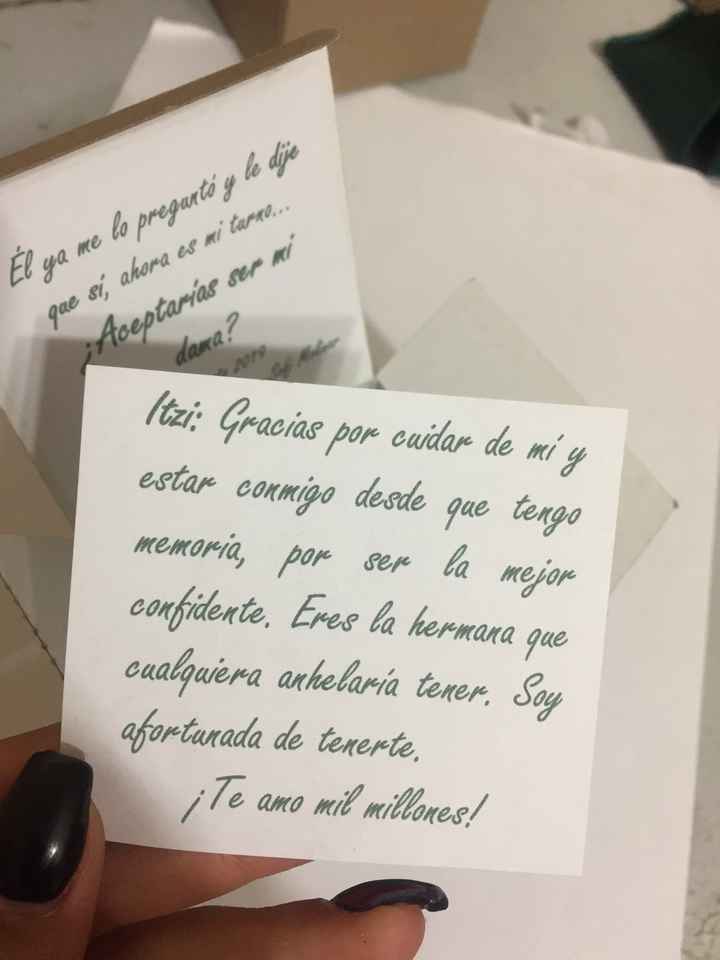 Él ya me lo preguntó y le dije
que sí, ahora es mi turno...
¿Aceptarías ser mi
dama?
de 2019
Itzi: Gracias por cuidar de mí y
estar conmigo desde que tengo
memoria, por ser la mejor
confidente. Eres la hermana que
cualquiera anhelaría tener. Soy
afortunada de tenerte.
¡Te amo mil millones!